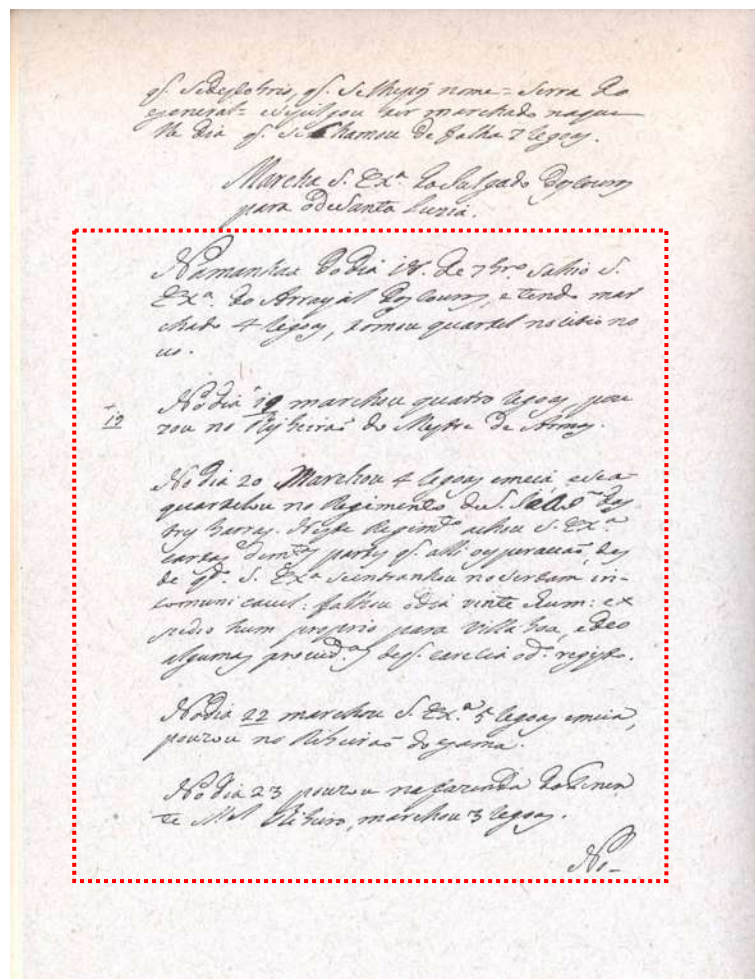 nome = Serra do
General = marchado naque
le dia q. se chamou de falha 7 legoas.
Marcha S. Ex.ª do
para o de Santa Luzia.
Na manhaã do dia 18. de 7br.o sahio S.
Ex.ª do Arrayal e tendo mar
chado 4 legoas, tomou quartel no citio no
vo.
19
No dia 19 marchou quatro legoas, pou
zou no Ribeiraõ do Mestre de Armas.
No dia 20 Marchou 4 legoas e meia e se a
quartelou no Regimento de S.
barras. Neste Regim.to achou S. Ex.ª
cartas de m.tas partes q. alli o esperavaõ, des
de q.do S. Ex.ª se entranhou no Sertam in-
comunicavel: falhou o dia vinte e hum: ex
pedio hum proprio para Villa boa, e deo
algumas provid.as de q. carecia o d.o registo.
No dia 22 marchou S. Ex.ª 5 legoas e meia,
pouzou no Ribeiraõ do gama.
No dia 23 pouzou na fazenda do Tenen
te M.el Ribeiro, marchou 3 legoas.
No-